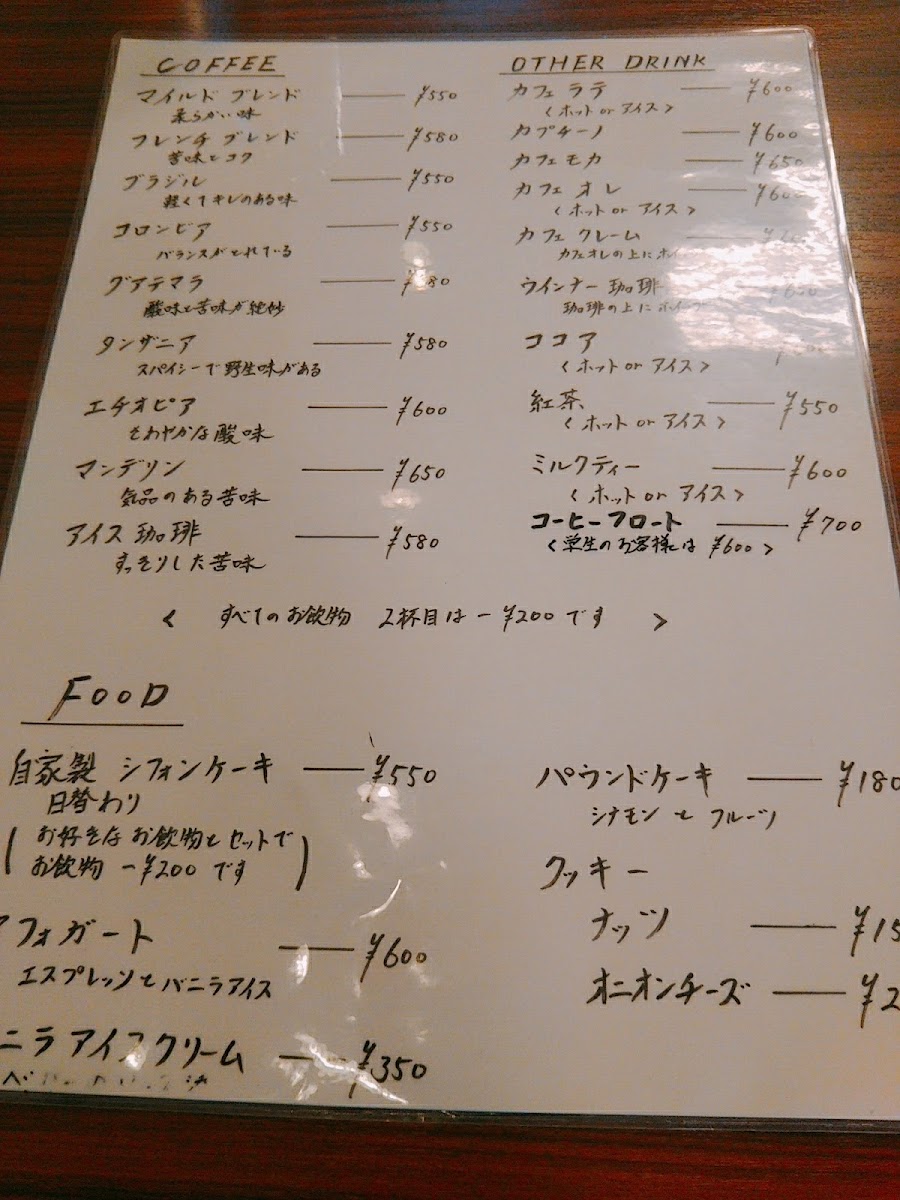 COFFEE
マイルド ブレンド ¥550
柔らかい味
フレンチ ブレンド ¥580
苦味とコク
ブラジル ¥550
軽くてキレのある味
コロンビア ¥550
バランスがとれている
グアテマラ
酸味と苦味が絶妙
タンザニア ¥580
スパイシーで野生味がある
エチオピア ¥600
さわやかな酸味
マンデリン ¥650
気品のある苦味
アイス 珈琲 ¥580
すっきりした苦味
OTHER DRINK
カフェ ラテ ¥600
<ホット or アイス>
カプチーノ ¥600
カフェモカ ¥650
カフェ オレ ¥600
<ホット or アイス>
カフェ クレーム
カフェオレの上に
ウインナー 珈琲
珈琲の上に
ココア
<ホット or アイス>
紅茶 ¥550
<ホット or アイス>
ミルクティー ¥600
<ホット or アイス>
コーヒーフロート ¥700
<学生のお客様は ¥600>
< すべてのお飲物 2杯目は -¥200 です >
FOOD
自家製 シフォンケーキ ¥550
日替わり
(お好きな お飲物と セットで
お飲物 -¥200 です)
フォガート ¥600
エスプレッソと バニラアイス
ニラ アイスクリーム ¥350
パウンドケーキ ¥180
シナモン と フルーツ
クッキー
ナッツ ¥15
オニオンチーズ ¥2